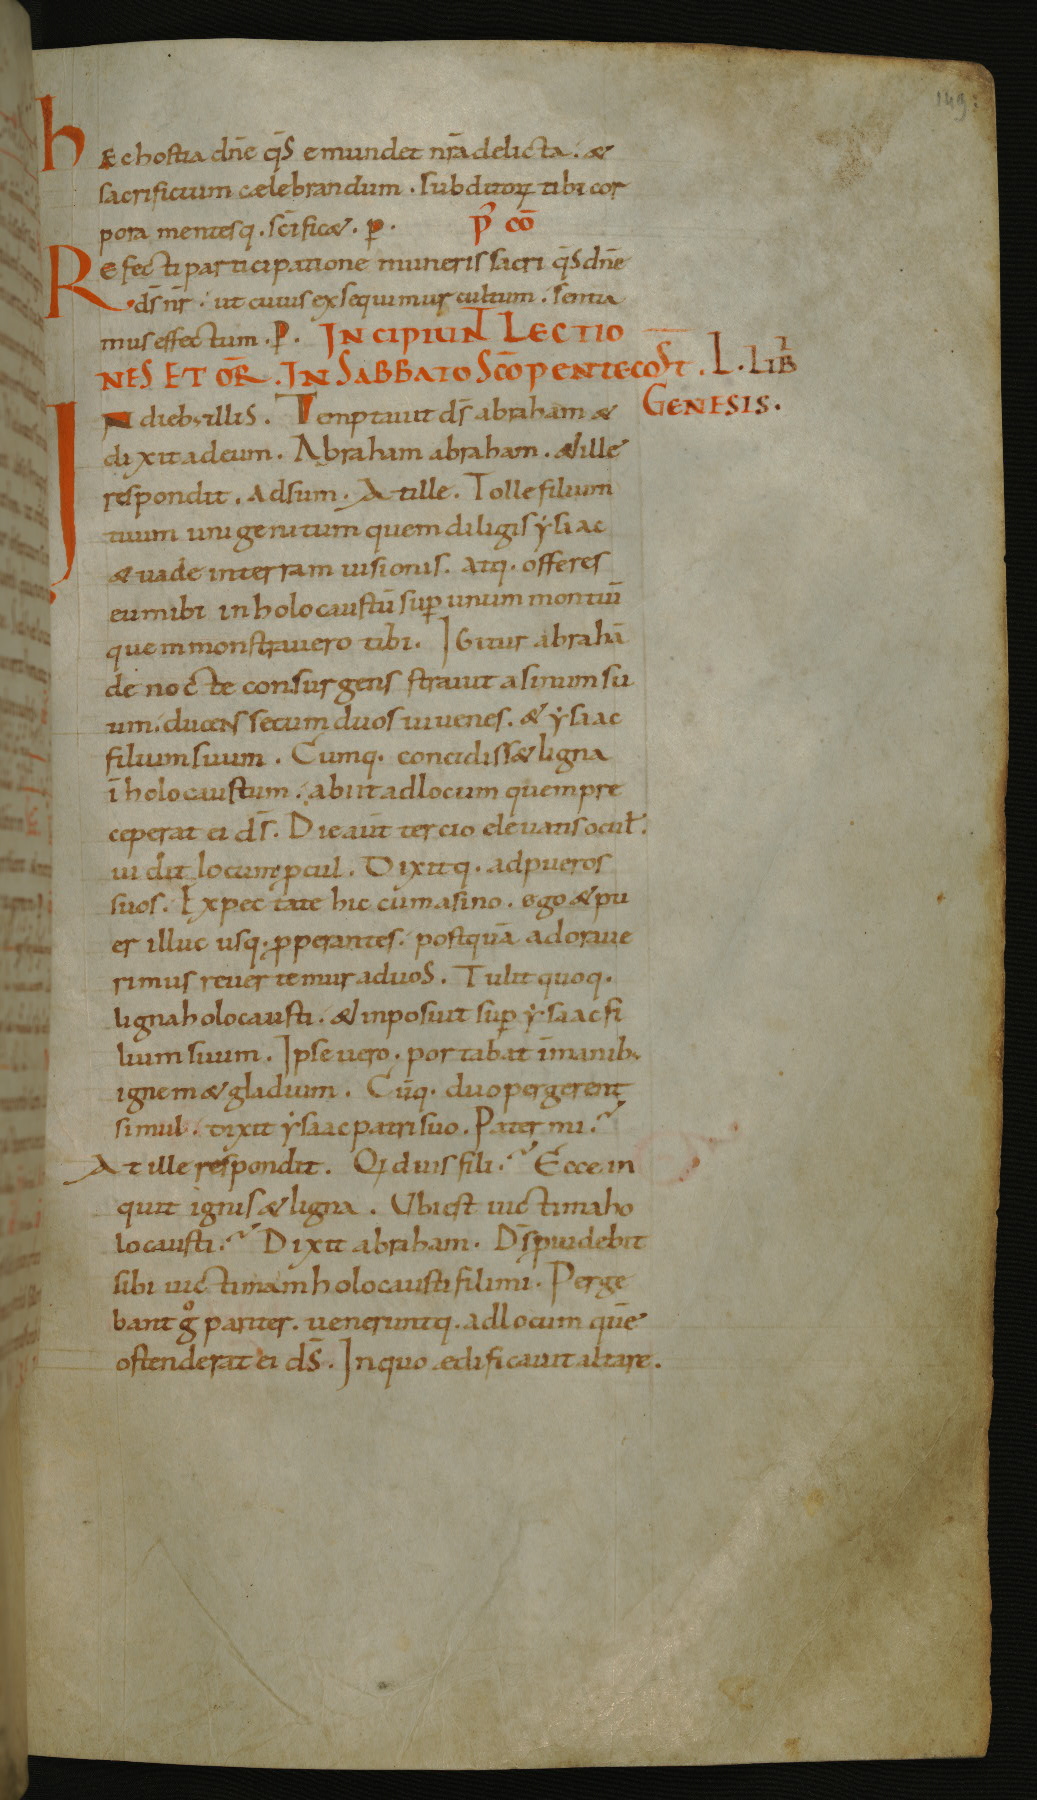 149:
hEc hostia dn̄e qs̄ emundet nr̄a delicta. &
sacrificium cælebrandum. subditoꝝ tibi cor
pora mentesq. scīfic&. p̲.
p̄ cō
Refecti participatione muneris sacri qs̄ dn̄e
ds̄ nr̄. ut cuius exsequimur cultum. sentia
mus effectum. P. INCIPIUNT LECTIO
NES ET OR̄. IN SABBATO SCŌ PENTECOST̄. L. LIB̄
GENESIS.
IN dieb; illis. Temptavit ds̄ abraham &
dixit ad eum. Abraham abraham. & ille
respondit. Adsum. At ille. Tolle filium
tuum unigenitum quem diligis ẏsaac
& uade in terram uisionis. Atq. offeres
eum ibi in holocaustū sup̱ unum montiū
quem monstrauero tibi. Igitur abrahā
de nocte consurgens strauit asinum su
um. ducens secum duos iuuenes. & ẏsaac
filium suum. Cumq. concidiss& ligna
ī holocaustum. abiit ad locum quem pre
ceperat ei ds̄. Die aūt tercio eleuans ocul̄.
uidit locum ꝓcul. Dixitq. ad pueros
suos. Expectate hic cum asino. ego & pu
er illuc usq. ꝓperantes. postquā adoraue
rimus reuertemur ad uos. Tulit quoq.
ligna holocausti. & inposuit sup̱ ẏsaac fi
lium suum. Ipse uero. portabat īmanib;
ignem & gladium. Cūq. duo pergerent
simul. dixit ẏsaac patri suo. Pater mi.
At ille respondit. Qid uis fili. Ecce in
quit ignis & ligna. Ubi est uictima ho
locausti. Dixit abraham. Ds̄ puidebit
sibi uictimam holocausti fili mi. Perge
bant gͦ pariter. ueneruntq. ad locum quē
ostenderat ei ds̄. In quo ædificauit altare.